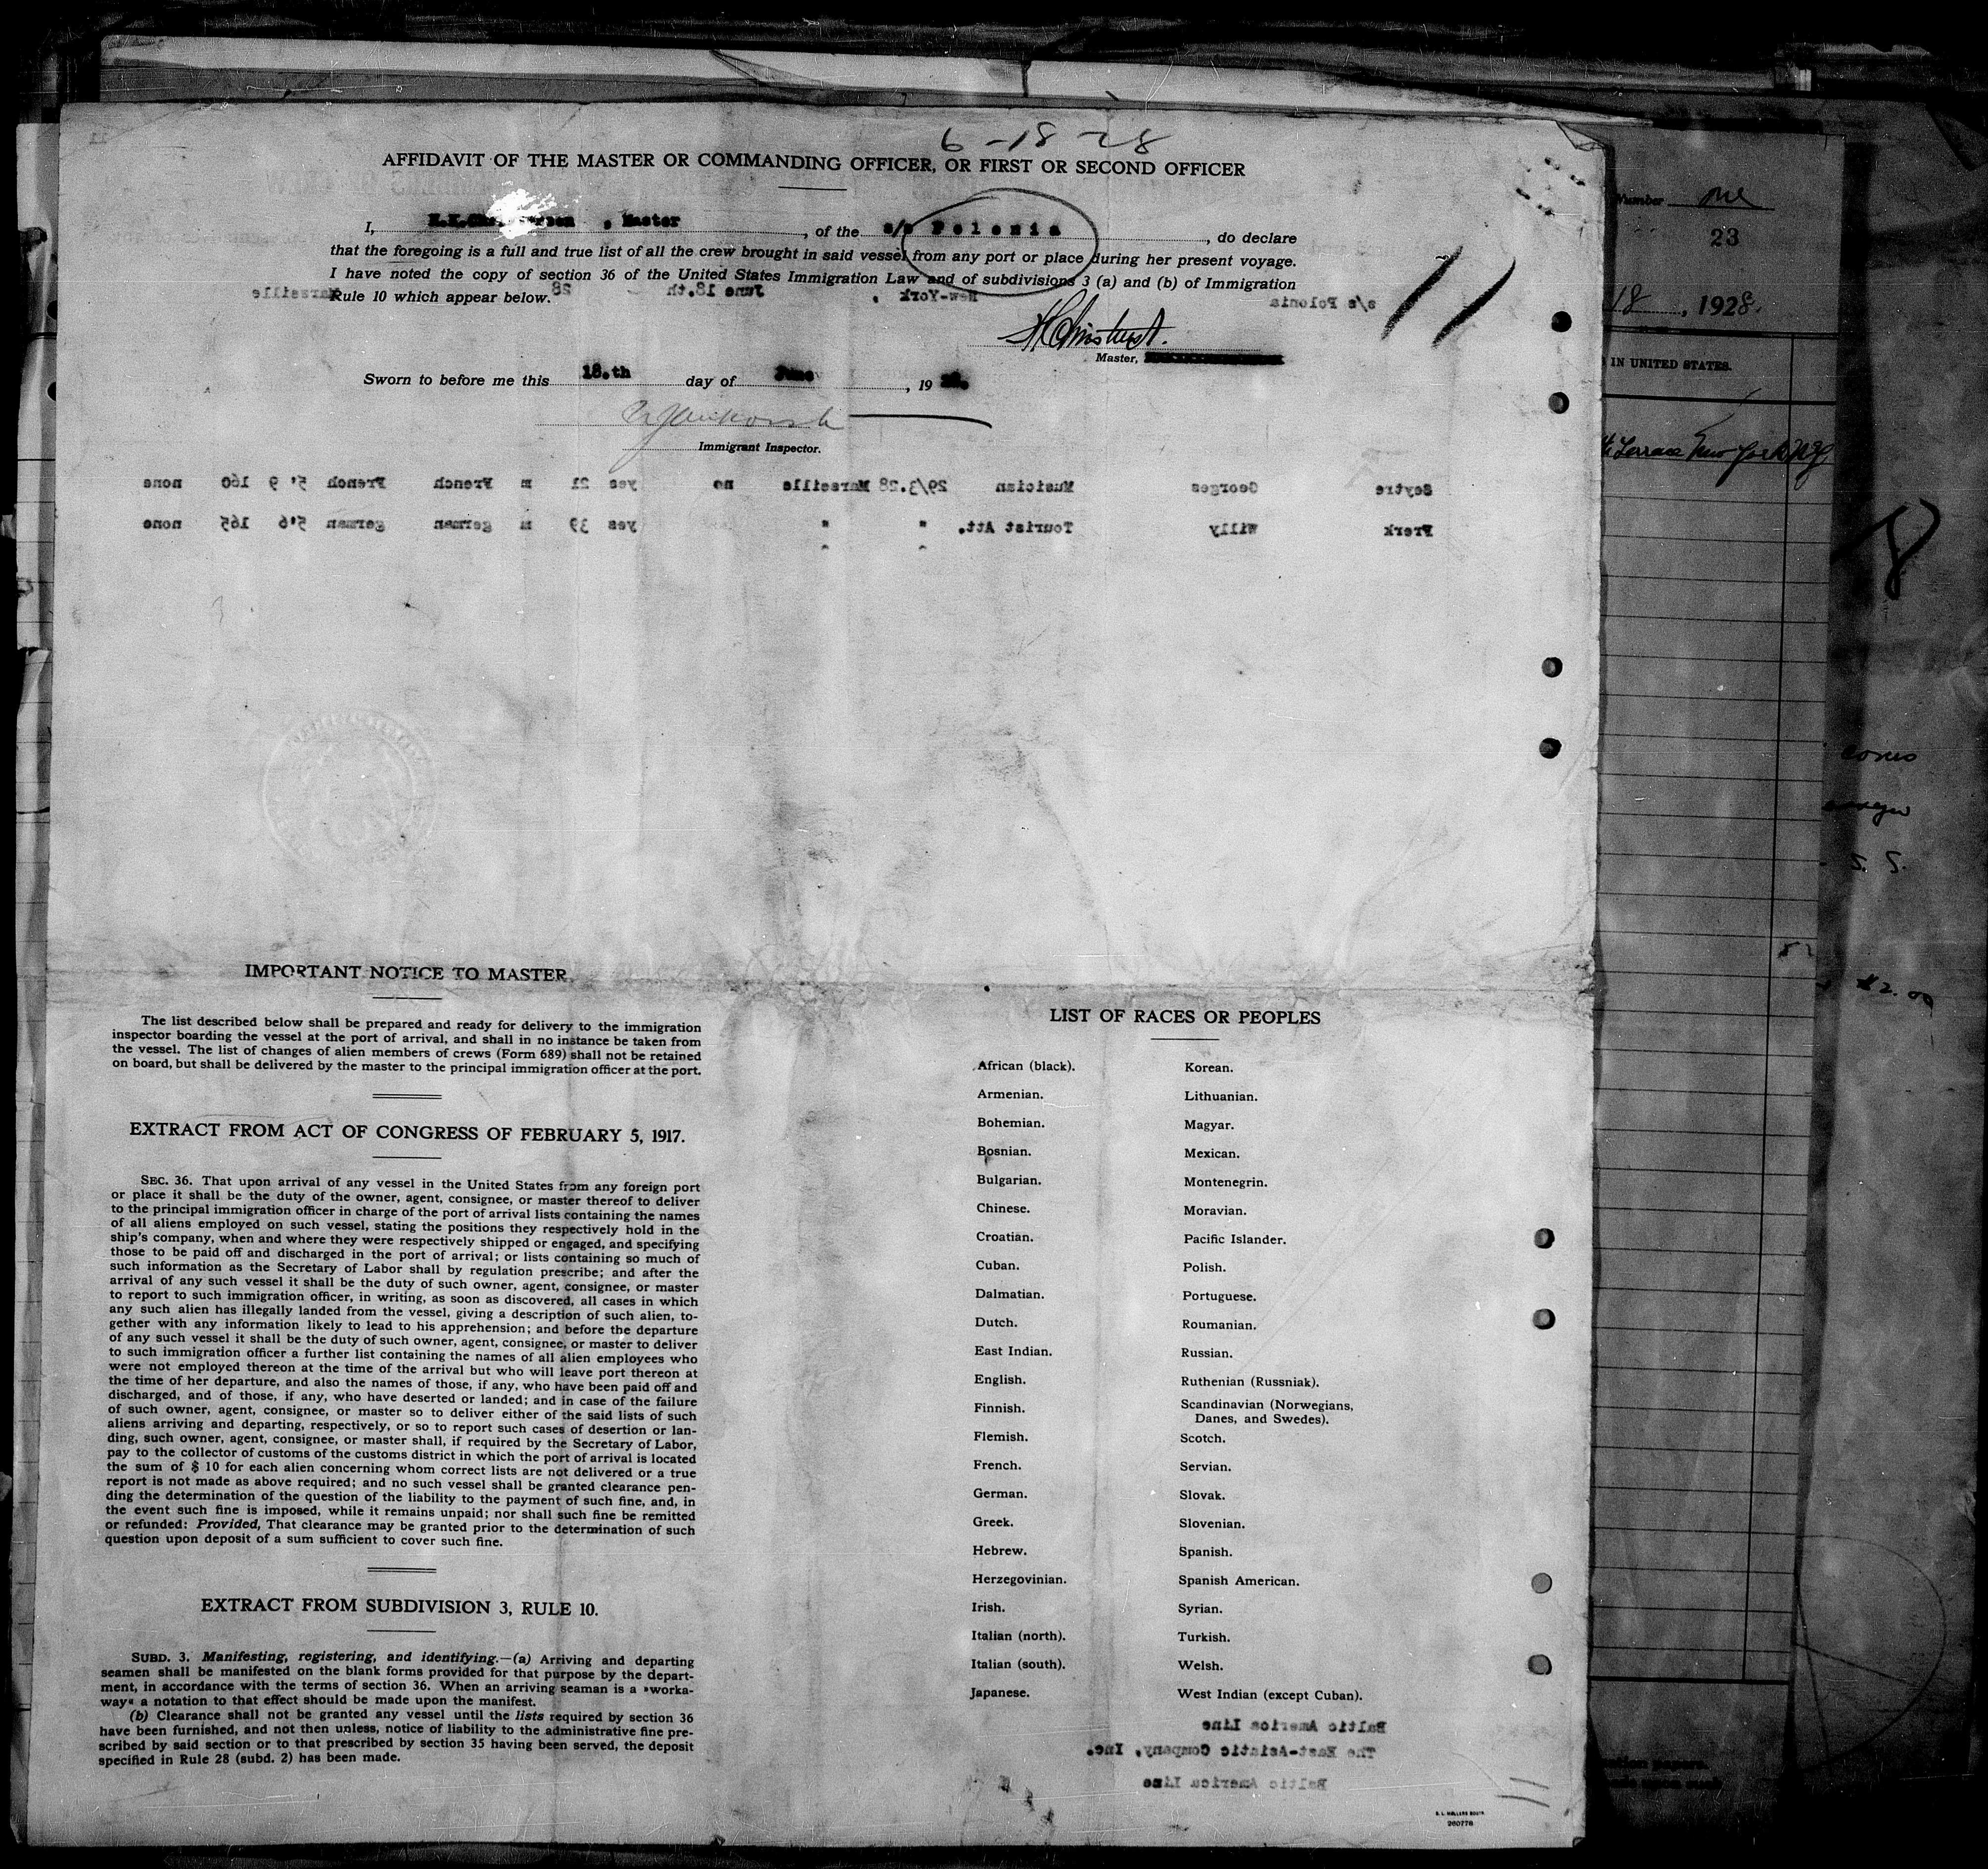 6-18-28
AFFIDAVIT OF THE MASTER OR COMMANDING OFFICER, OR FIRST OR SECOND OFFICER
I, , Master , of the s/s Polonia , do declare
that the foregoing is a full and true list of all the crew brought in said vessel from any port or place during her present voyage.
I have noted the copy of section 36 of the United States Immigration Law and of subdivisions 3 (a) and (b) of Immigration
Rule 10 which appear below.
Marseille 28 June 18.th New-York , s/s Polonia
11
Master,
Sworn to before me this 18.th day of June , 19 28.
Immigrant Inspector.
Seytre Georges Musician 29/3.28 Marseille no yes 21 m French French 5' 9 160 none
Prerk Willy Tourist Att. " " yes 39 m german german 5'6 165 none
IMPORTANT NOTICE TO MASTER
The list described below shall be prepared and ready for delivery to the immigration
inspector boarding the vessel at the port of arrival, and shall in no instance be taken from
the vessel. The list of changes of alien members of crews (Form 689) shall not be retained
on board, but shall be delivered by the master to the principal immigration officer at the port.
EXTRACT FROM ACT OF CONGRESS OF FEBRUARY 5, 1917.
SEC. 36. That upon arrival of any vessel in the United States from any foreign port
or place it shall be the duty of the owner, agent, consignee, or master thereof to deliver
to the principal immigration officer in charge of the port of arrival lists containing the names
of all aliens employed on such vessel, stating the positions they respectively hold in the
ship's company, when and where they were respectively shipped or engaged, and specifying
those to be paid off and discharged in the port of arrival; or lists containing so much of
such information as the Secretary of Labor shall by regulation prescribe; and after the
arrival of any such vessel it shall be the duty of such owner, agent, consignee, or master
to report to such immigration officer, in writing, as soon as discovered, all cases in which
any such alien has illegally landed from the vessel, giving a description of such alien, to-
gether with any information likely to lead to his apprehension; and before the departure
of any such vessel it shall be the duty of such owner, agent, consignee, or master to deliver
to such immigration officer a further list containing the names of all alien employees who
were not employed thereon at the time of the arrival but who will leave port thereon at
the time of her departure, and also the names of those, if any, who have been paid off and
discharged, and of those, if any, who have deserted or landed; and in case of the failure
of such owner, agent, consignee, or master so to deliver either of the said lists of such
aliens arriving and departing, respectively, or so to report such cases of desertion or lan-
ding, such owner, agent, consignee, or master shall, if required by the Secretary of Labor,
pay to the collector of customs of the customs district in which the port of arrival is located
the sum of $ 10 for each alien concerning whom correct lists are not delivered or a true
report is not made as above required; and no such vessel shall be granted clearance pen-
ding the determination of the question of the liability to the payment of such fine, and, in
the event such fine is imposed, while it remains unpaid; nor shall such fine be remitted
or refunded: Provided, That clearance may be granted prior to the determination of such
question upon deposit of a sum sufficient to cover such fine.
EXTRACT FROM SUBDIVISION 3, RULE 10.
SUBD. 3. Manifesting, registering, and identifying.—(a) Arriving and departing
seamen shall be manifested on the blank forms provided for that purpose by the depart-
ment, in accordance with the terms of section 36. When an arriving seaman is a »worka-
way« a notation to that effect should be made upon the manifest.
(b) Clearance shall not be granted any vessel until the lists required by section 36
have been furnished, and not then unless, notice of liability to the administrative fine pre-
scribed by said section or to that prescribed by section 35 having been served, the deposit
specified in Rule 28 (subd. 2) has been made.
LIST OF RACES OR PEOPLES
African (black).
Armenian.
Bohemian.
Bosnian.
Bulgarian.
Chinese.
Croatian.
Cuban.
Dalmatian.
Dutch.
East Indian.
English.
Finnish.
Flemish.
French.
German.
Greek.
Hebrew.
Herzegovinian.
Irish.
Italian (north).
Italian (south).
Japanese.
Korean.
Lithuanian.
Magyar.
Mexican.
Montenegrin.
Moravian.
Pacific Islander.
Polish.
Portuguese.
Roumanian.
Russian.
Ruthenian (Russniak).
Scandinavian (Norwegians,
Danes, and Swedes).
Scotch.
Servian.
Slovak.
Slovenian.
Spanish.
Spanish American.
Syrian.
Turkish.
Welsh.
West Indian (except Cuban).
Baltic America Line
The East-Asiatic Company, Inc.
Baltic America Line
260778
Number one
23
18, 1928.
IN UNITED STATES.
Terrace New York
S. S.
$2.00